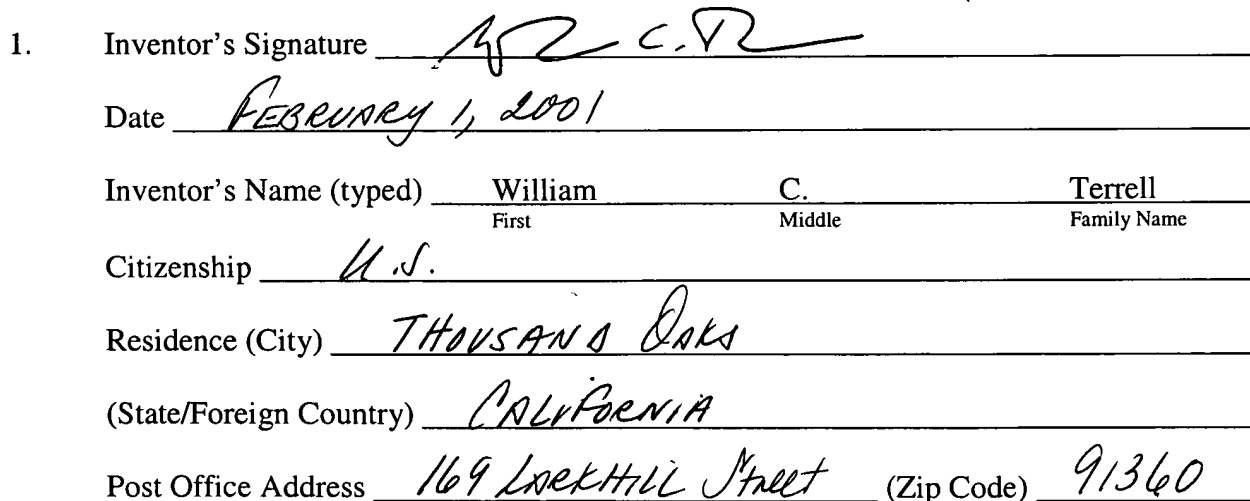 1. Inventor's Signature C.
Date FEBRUARY 1, 2001
Inventor's Name (typed) William C. Terrell
First Middle Family Name
Citizenship U.S.
Residence (City) THOUSAND OAKS
(State/Foreign Country) CALIFORNIA
Post Office Address 169 LARKHILL Street (Zip Code) 91360